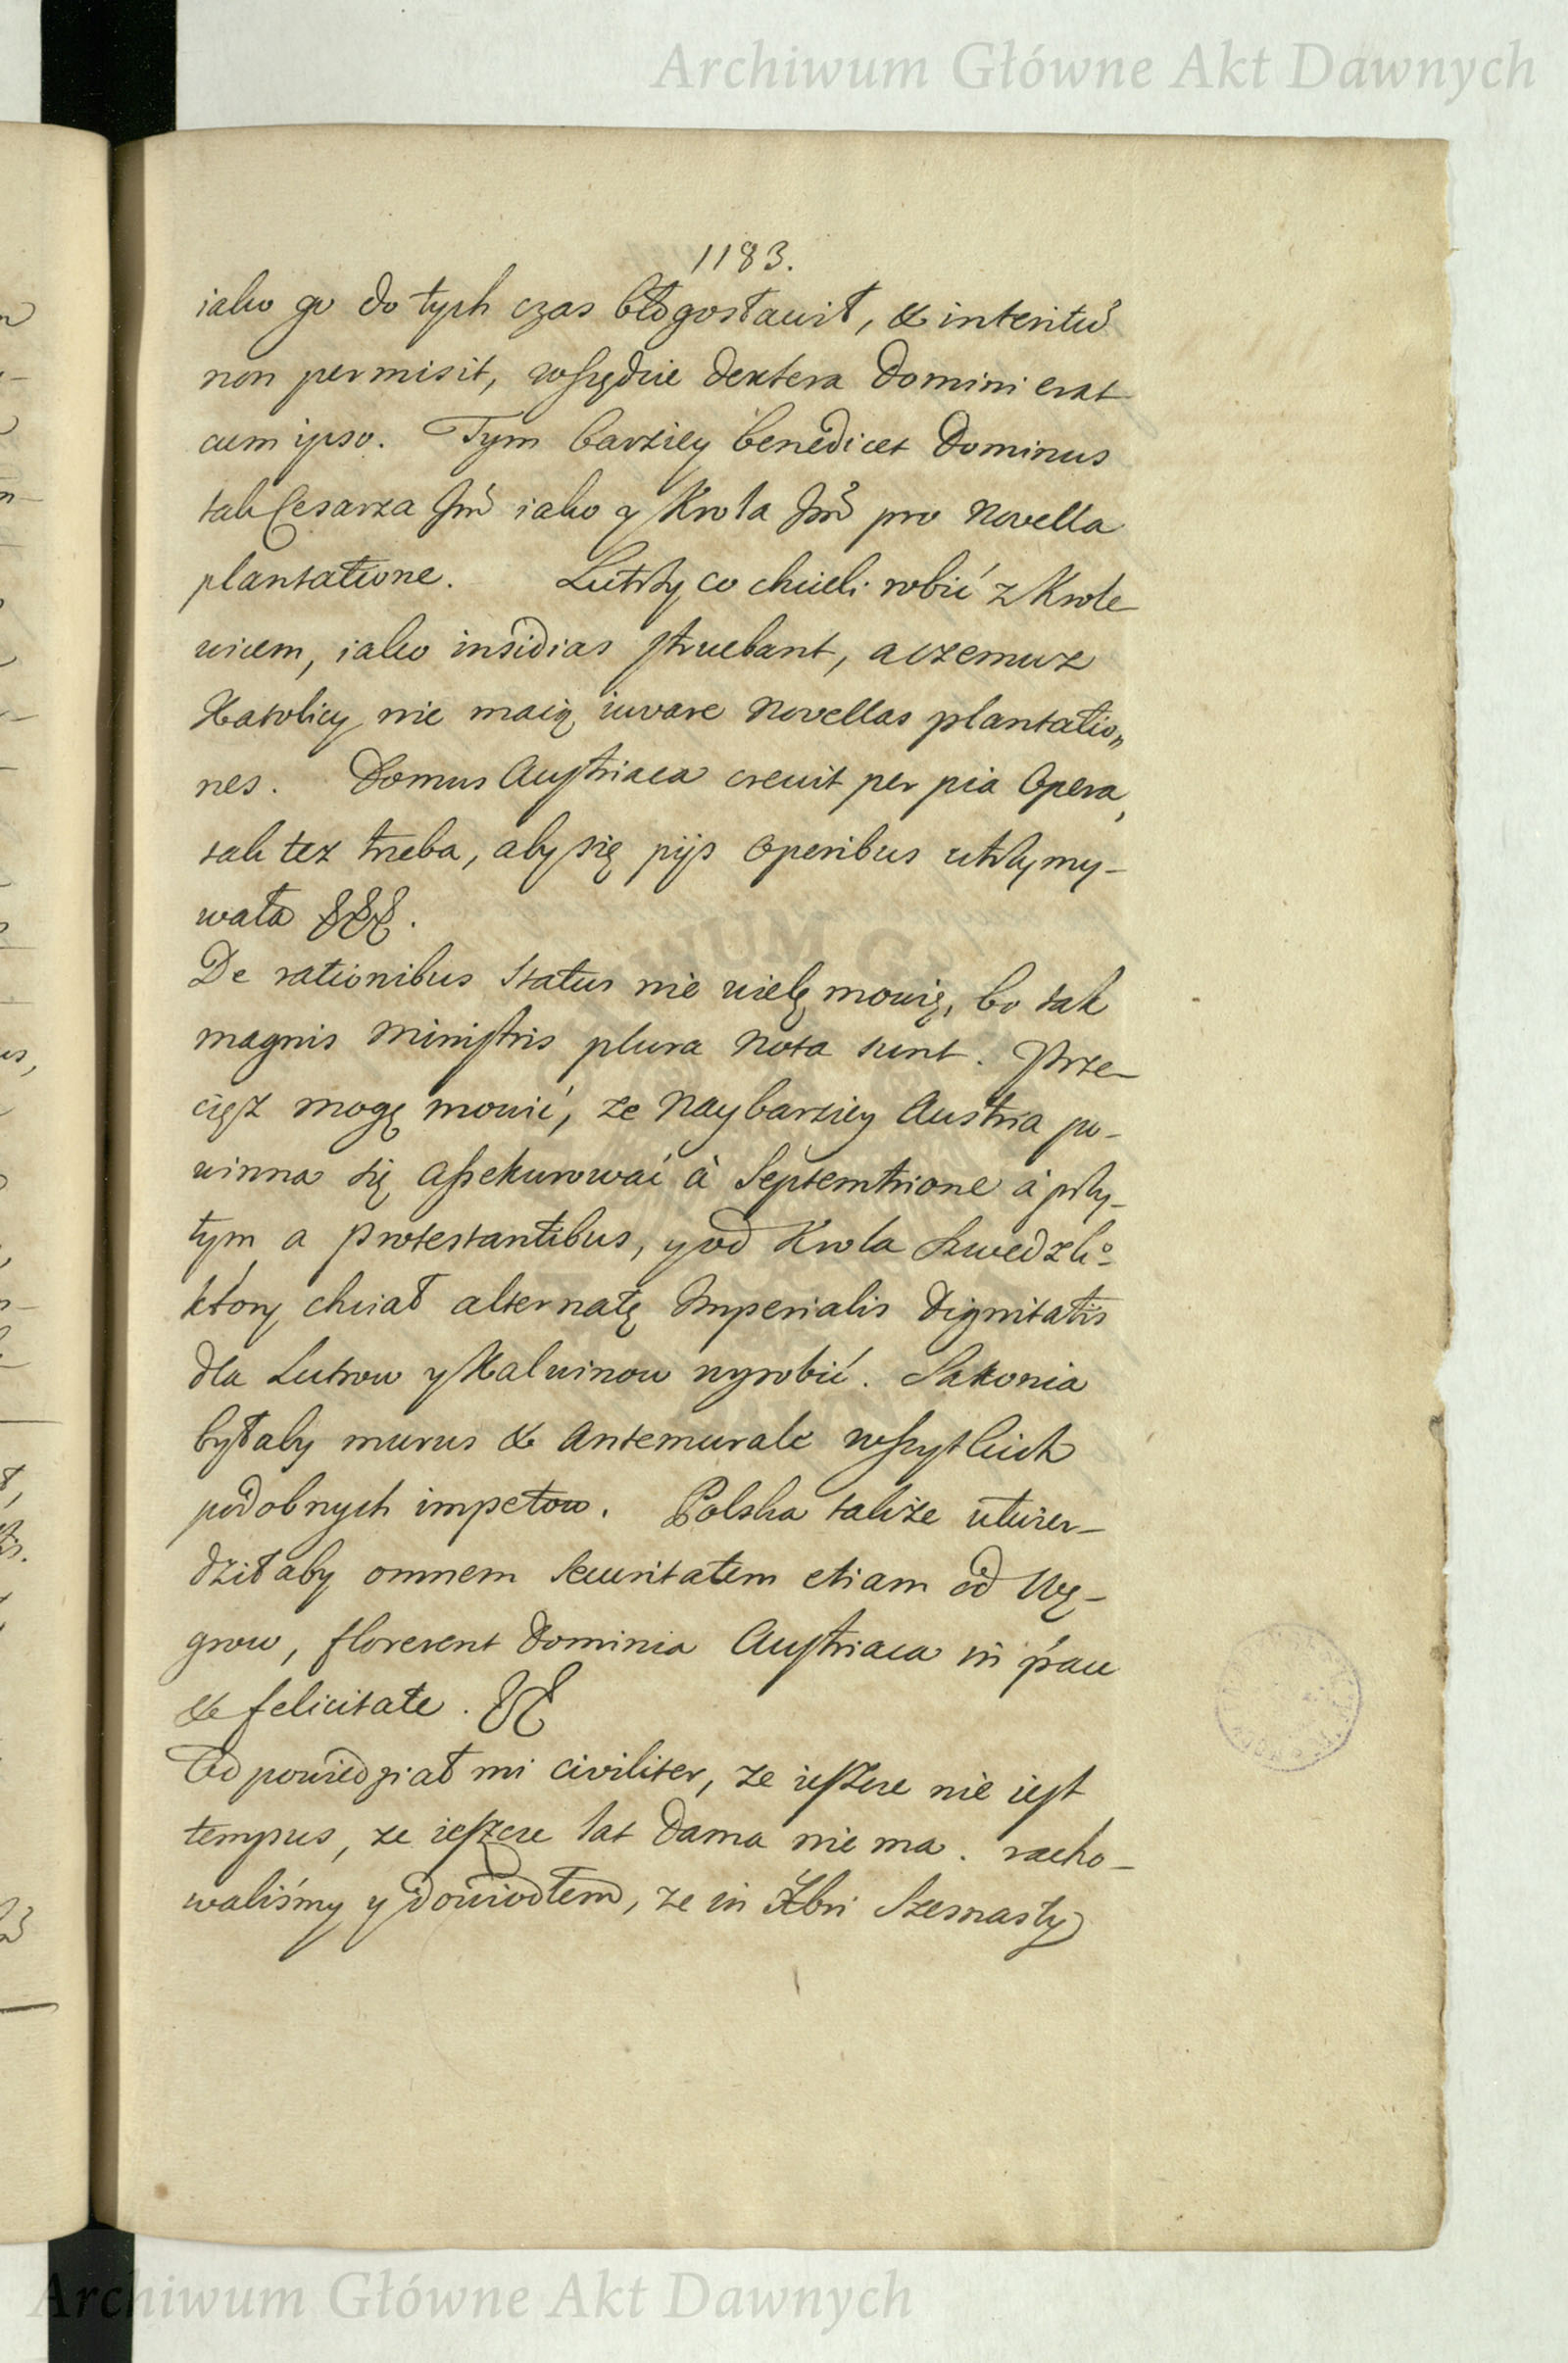 Archiwum Główne Akt Dawnych
1183.
iako go do tych czas błogosławił, & interitũ
non permisit, wszędzie dextera Domini erat
cum ipso. Tym barziey benedicet Dominus
tak Cesarza Jmć iako y Krola Jmć pro Novella
plantatione. Lutrzy co chcieli robić z Krole-
wicem, iako insidias struebant, a czemuz
Katolicy nie maią iuvare Novellas plantatio„
nes. Domus Austriaca crevit per pia Opera,
tak tez trzeba, aby się pijs operibus utrzymy-
wała &&&.
De rationibus Status nie wielę mowię, bo tak
magnis Ministris plura Nota sunt. Prze-
cięż mogę mowić, ze Naybarziey Austria po-
winna się assekurować à Septemtrione à przy-
tym a Protestantibus, y od Krola Szwedzkiº
który chciał alternatę Imperialis Dignitatis
dla Lutrow y Kalwinow wyrobić. Saxonia
byłaby murus & Antemurale wszytkich
podobnych impetow. Polska także utwier-
dziłaby omnem Securitatem etiam od Wę-
grow, florerent Dominia Austriaca in pace
& felicitate. &&
Odpowiedział mi civiliter, ze ieszcze nie iest
tempus, ze ieszcze lat Dama nie ma. racho-
waliśmy y dowiodłem, ze in Xbri Szesnasty
Archiwum Główne Akt Dawnych